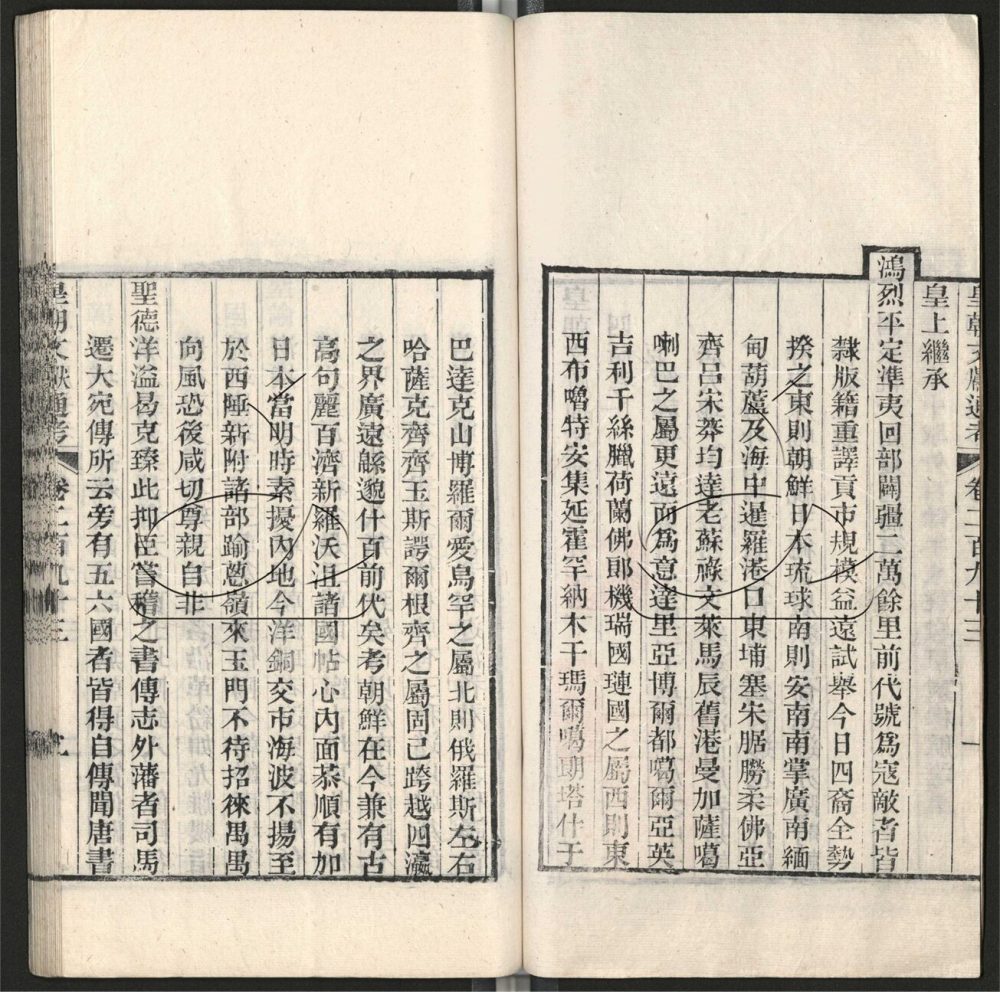 皇朝文獻通考 卷二百九十三 一
皇上繼承
鴻烈平定準夷回部闢疆二萬餘里前代號爲寇敵者皆
隸版籍重譯貢市規模益遠試舉今日四裔全勢
揆之東則朝鮮日本琉球南則安南南掌廣南緬
甸葫蘆及海中暹羅港口東埔塞朱腒朥柔佛亞
齊呂宋莽均達老蘇祿文萊馬辰舊港曼加薩噶
喇巴之屬更遠而爲意達里亞博爾都噶爾亞英
吉利干絲臘荷蘭佛郎機瑞國璉國之屬西則東
西布嚕特安集延霍罕納木干瑪爾噶朗塔什干
巴達克山博羅爾愛烏罕之屬北則俄羅斯左右
哈薩克齊齊玉斯諤爾根齊之屬固已跨越四瀛
之界廣遠緜邈什百前代矣考朝鮮在今兼有古
高句麗百濟新羅沃沮諸國帖心內面恭順有加
日本當明時素擾內地今洋銅交市海波不揚至
於西陲新附諸部踰蔥嶺來玉門不待招徠禺禺
向風恐後咸切尊親自非
聖德洋溢曷克臻此抑臣嘗稽之書傳志外藩者司馬
遷大宛傳所云旁有五六國者皆得自傳聞唐書
皇朝文獻通考 卷二百九十三